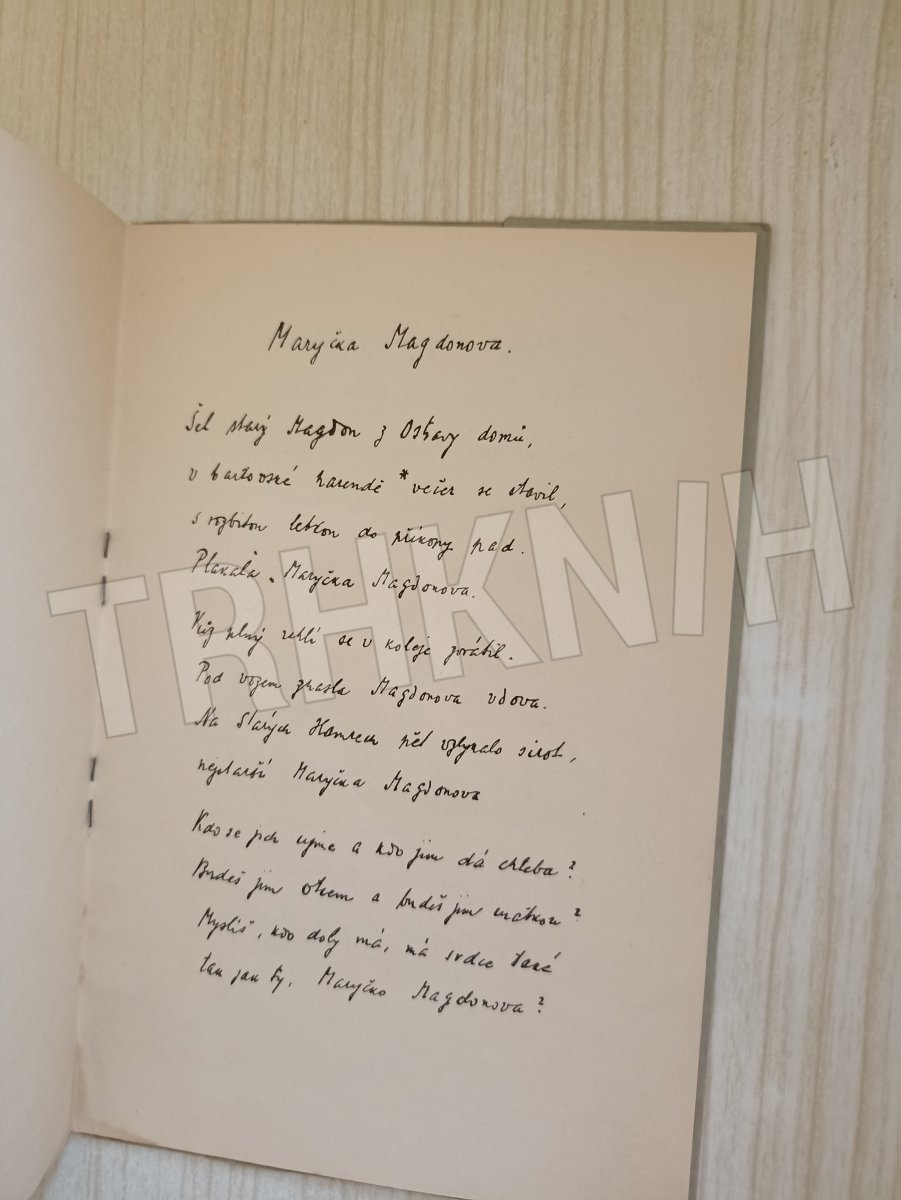 Maryčka Magdonova.
Šel starý Magdon z Ostravy domů,
v bartovské harendě * večer se stavil,
s rozbitou lebkou do příkopy pad.
Plakala Maryčka Magdonova.
Vůz plný uhlí se v koleje zvrátil.
Pod vozem zhasla Magdonova vdova.
Na Starých Hamrech pět vzlykalo sirot,
nejstarší Maryčka Magdonova
Kdo se jich ujme a kdo jim dá chleba?
Budeš jim otcem a budeš jim matkou?
Myslíš, kdo doly má, má srdce také
tak jak ty, Maryčko Magdonova?
TRHKNIH